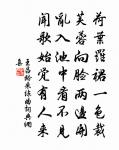 荷葉羅裙一色裁
芙蓉向臉兩邊開
亂入池中看不見
聞歌始覺有人來
王昌齡采蓮曲詞典網
集